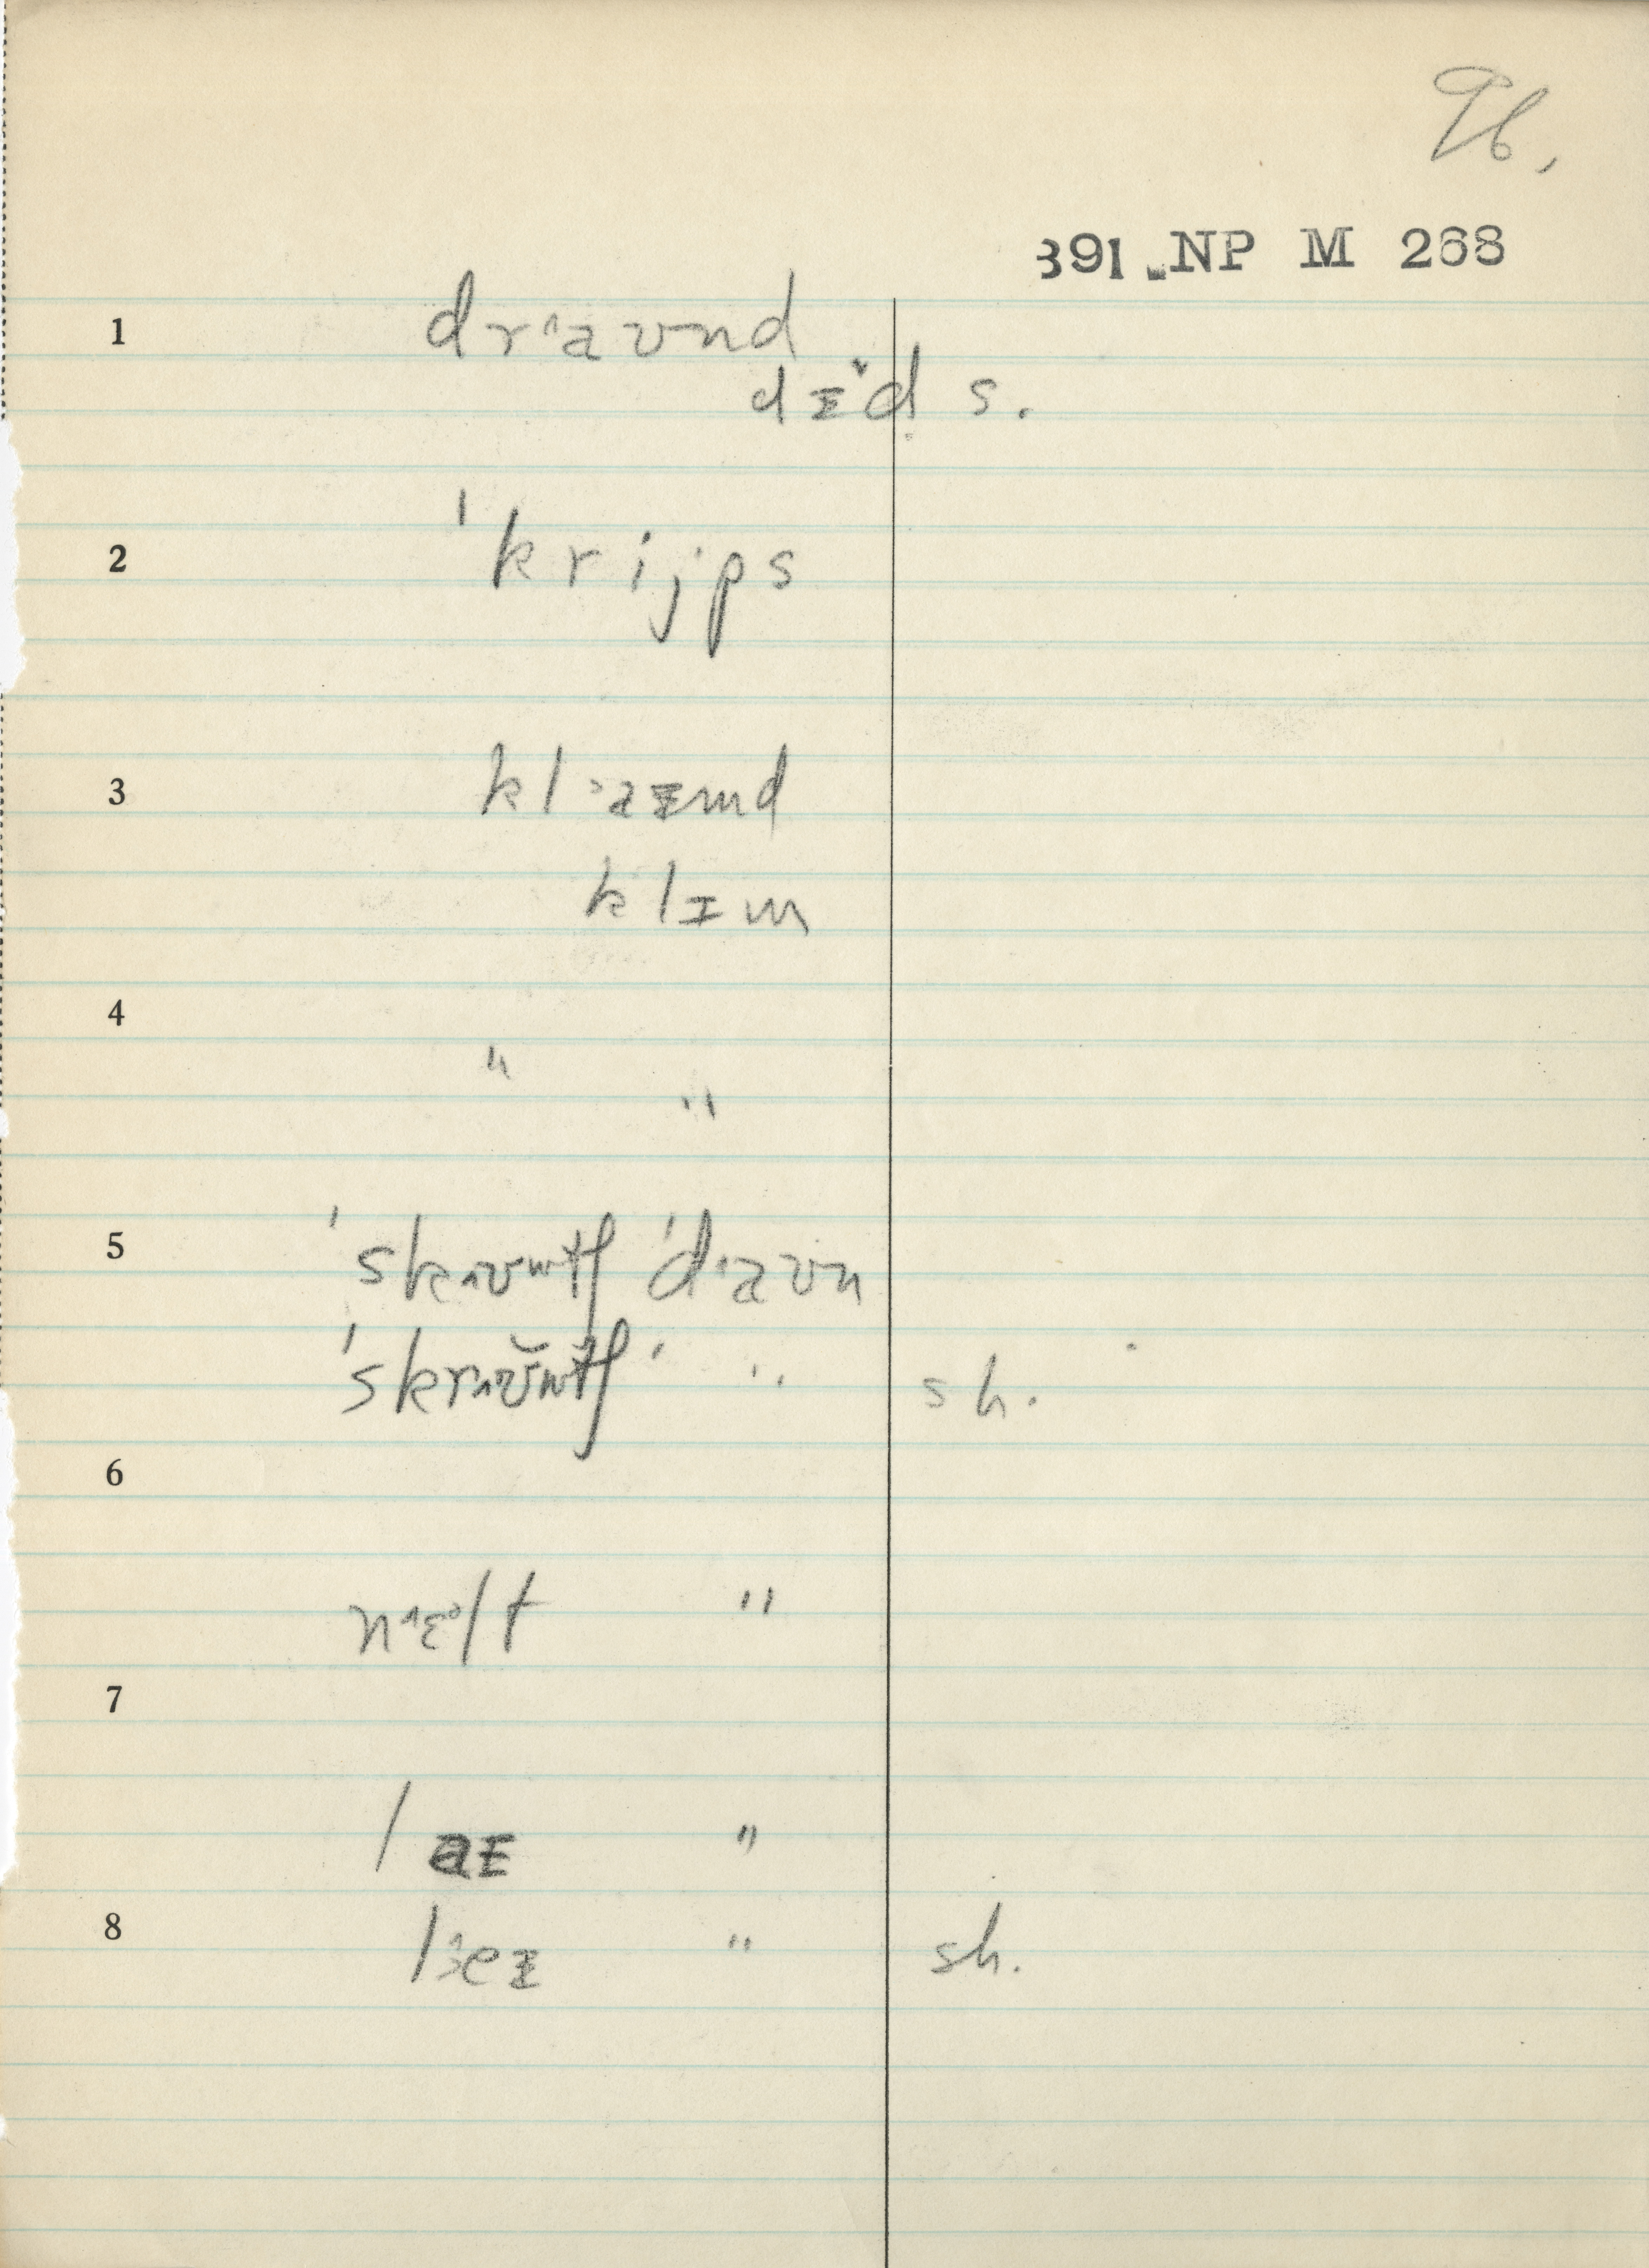 96.
391 NP M 268
1 drˈaʊnd
dɪˇd s.
2 ˈkrijps
3 klˈaɪmd
klɪm
4 " "
5 ˈskrʌʊntʃ ˈdˑaʊn
ˈskrʌʊ̆ntʃ ˈ " sh.
6
nˑɛəlt "
7
laɪ "
8 lˑeɪ " sh.